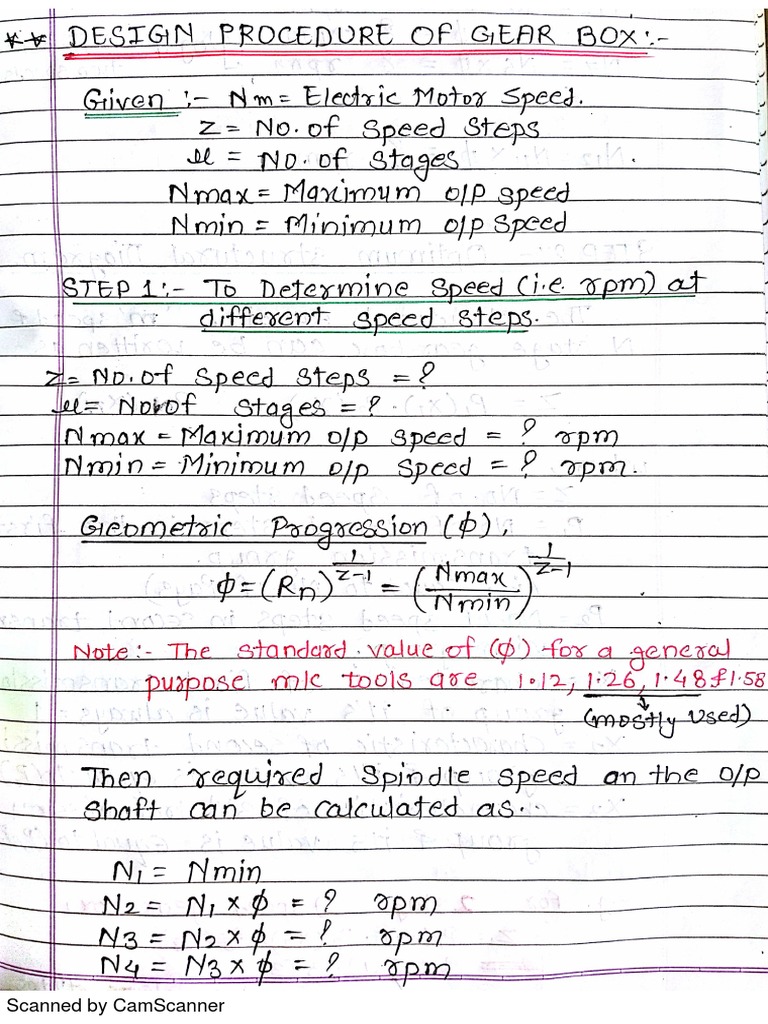 ** DESIGN PROCEDURE OF GEAR BOX:-
Given :- Nm = Electric Motor Speed.
Z = No. of Speed Steps
u = No. of Stages
Nmax = Maximum o/p speed
Nmin = Minimum o/p Speed
STEP 1:- To Determine Speed (i.e. rpm) at
different speed steps.
Z = No. of Speed Steps = ?
u = No. of Stages = ?
Nmax = Maximum o/p speed = ? rpm
Nmin = Minimum o/p speed = ? rpm.
Geometric Progression (ϕ),
ϕ = (Rn)^(1/(Z-1)) = (Nmax/Nmin)^(1/(Z-1))
Note:- The standard value of (ϕ) for a general
purpose m/c tools are 1.12, 1.26, 1.48 & 1.58
(mostly Used)
Then required Spindle speed on the o/p
Shaft can be calculated as.
N1 = Nmin
N2 = N1 x ϕ = ? rpm
N3 = N2 x ϕ = ? rpm
N4 = N3 x ϕ = ? rpm
Scanned by CamScanner